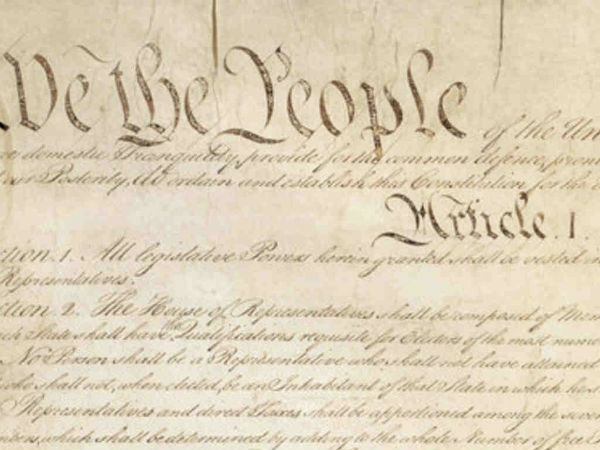 We the People of the Un
domestic Tranquility, provide for the common defence, prom
our Posterity, do ordain and establish this Constitution for the
Article. I.
ction. 1. All legislative Powers herein granted shall be vested in
Representatives.
ction. 2. The House of Representatives shall be composed of Mem
ch State shall have the Qualifications requisite for Electors of the most numer
No Person shall be a Representative who shall not have attained
who shall not, when elected, be an Inhabitant of that State in which he s
Representatives and direct Taxes shall be apportioned among the sever
mbers, which shall be determined by adding to the whole Number of free